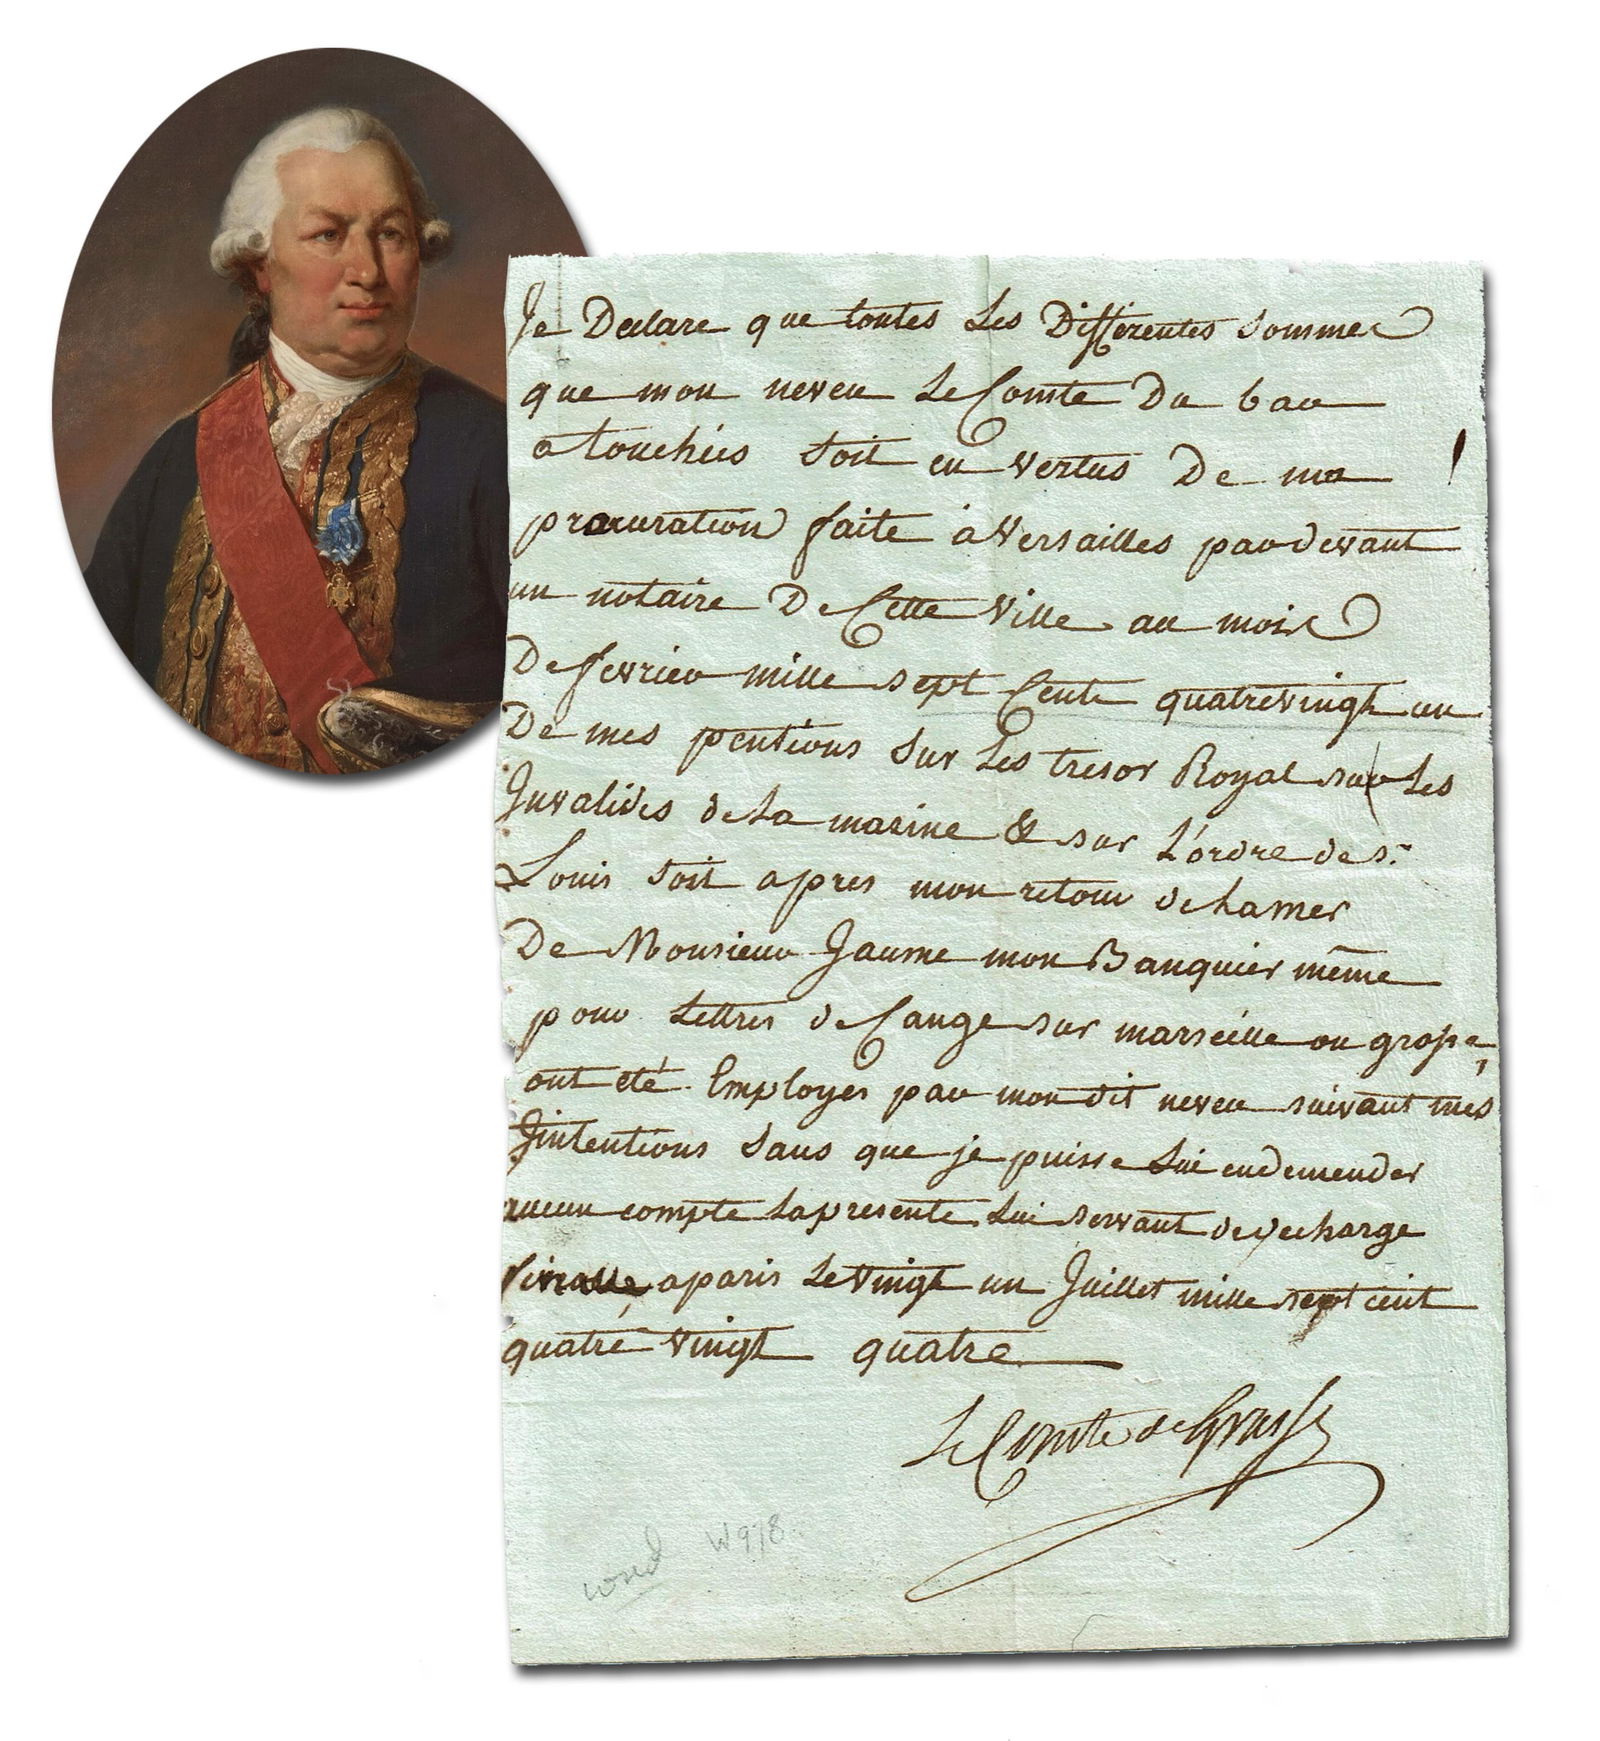 Je Declare que toutes Les Differentes sommes
que mon neveu Le Comte Du bar
a touchées soit en vertus De ma
procuration faite à Versailles par devant
un notaire De Cette Ville au mois
De fevrier mille sept Cents quatrevingt un
De mes pentions sur Les tresor Royal sur Les
Invalides de La marine & sur L'ordre de St
Louis soit apres mon retour de La mer
De Monsieur Jaume mon Banquier même
pour Lettres de Cange sur marseille ou
ont été Employes par mon dit neveu suivant mes
Jintentions sans que je puisse Lui en demender
aucun compte La presente Lui servant de decharge
a paris Le Vingt un Juillet mille sept cent
quatre vingt quatre
Le Comte de Grasse
W978